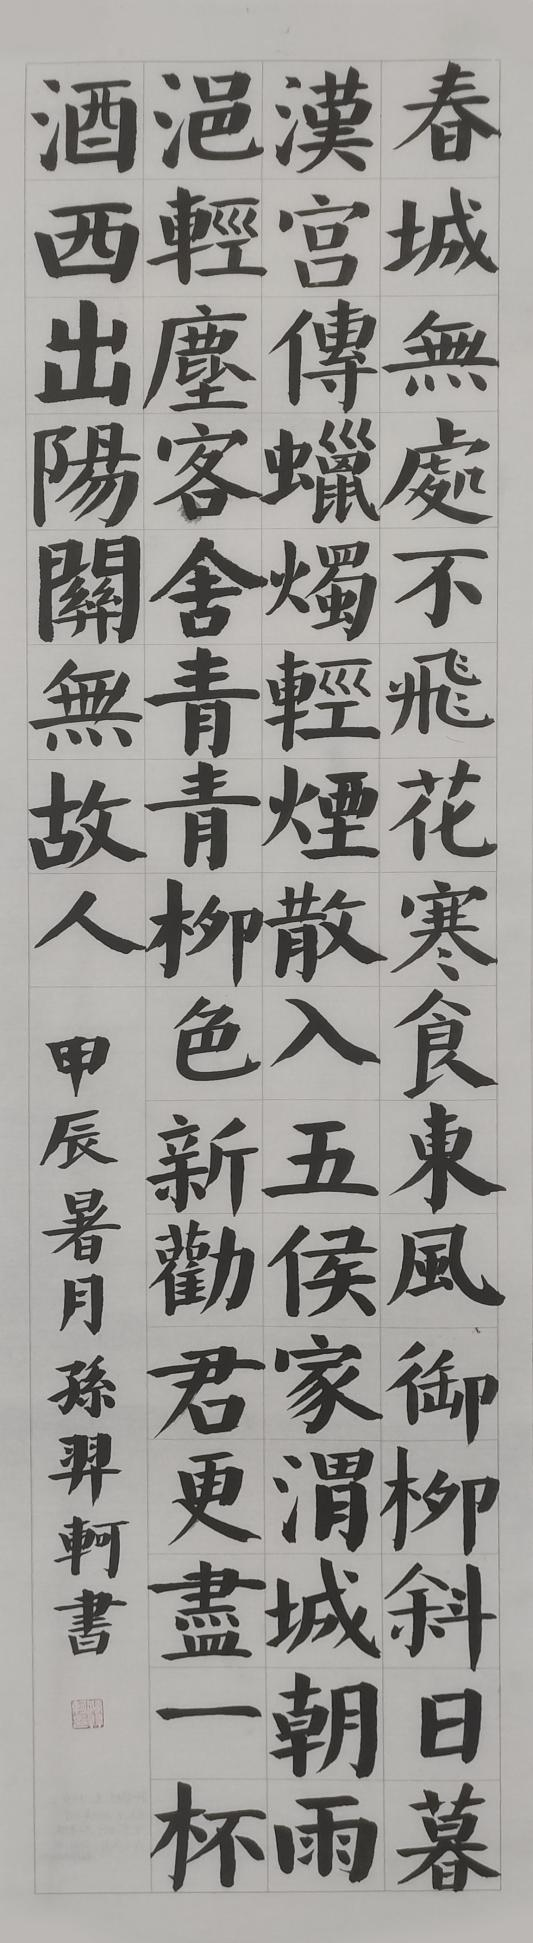 春城無處不飛花寒食東風御柳斜日暮
漢宮傳蠟燭輕煙散入五侯家渭城朝雨
浥輕塵客舍青青柳色新勸君更盡一杯
酒西出陽關無故人
甲辰暑月孫羿軻書